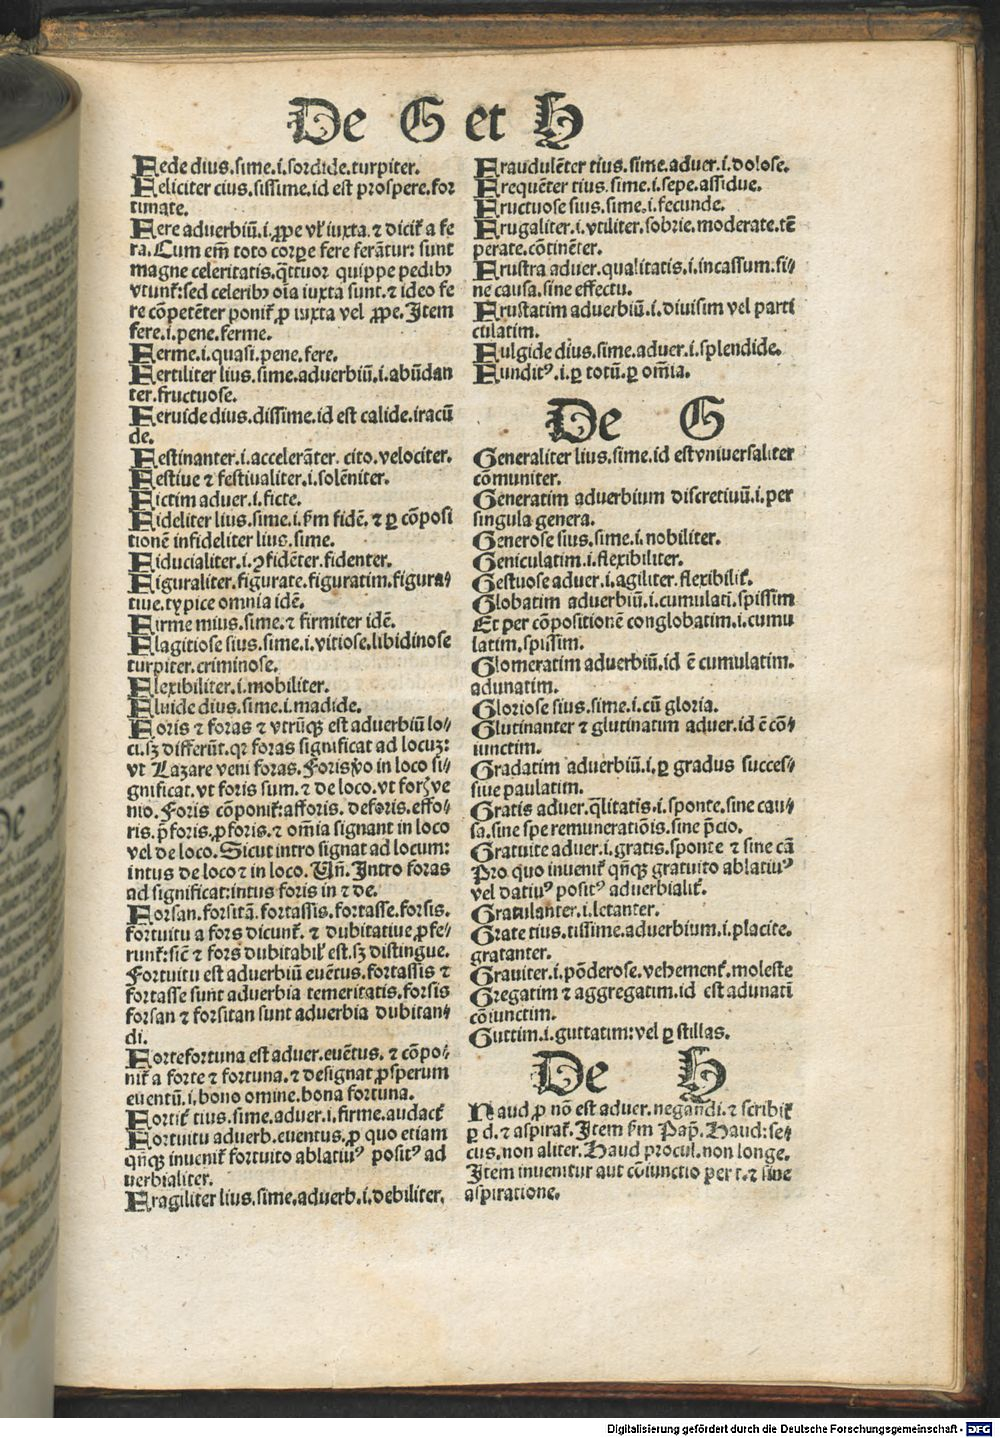 De G et H
Fede dius.sime.i.sordide.turpiter.
Feliciter cius.sissime.id est prospere.for
tunate.
Fere aduerbiū.i.ꝓpe vl' iuxta.⁊ dicit᷑ a fe
ra.Cum em̄ toto corꝑe fere ferātur: sunt
magne celeritatis.q̄ttuor quippe pedibꝰ
vtunt᷑:sed celeribꝰ oīa iuxta sunt.⁊ ideo fe
re cōpetēter ponit᷑ ꝓ iuxta vel ꝓpe.Item
fere.i.pene.ferme.
Ferme.i.quasi.pene.fere.
Fertiliter lius.sime.aduerbiū.i.abūdan
ter.fructuose.
Feruide dius.dissime.id est calide.iracū
de.
Festinanter.i.accelerāter.cito.velociter.
Festiue ⁊ festiualiter.i.solēniter.
Fictim aduer.i.ficte.
Fideliter lius.sime.i.s̄m fidē.⁊ ꝑ cōposi
tionē infideliter lius.sime.
Fiducialiter.i.ꝯfidēter.fidenter.
Figuraliter.figurate.figuratim.figura⸗
tiue.typice omnia idē.
Firme mius.sime.⁊ firmiter idē.
Flagitiose sius.sime.i.vitiose.libidinose
turpiter.criminose.
Flexibiliter.i.mobiliter.
Fluide dius.sime.i.madide.
Foris ⁊ foras ⁊ vtrūqꝫ est aduerbiū lo⸗
ci.sꝫ differūt.qꝛ foras significat ad locuꝫ:
vt Lazare veni foras.Foris v̓o in loco si⸗
gnificat.vt foris sum.⁊ de loco.vt foris ve
nio.Foris cōponit᷑:afforis.deforis.effo⸗
ris.p̄foris.ꝓforis.⁊ om̄ia signant in loco
vel de loco.Sicut intro signat ad locum:
intus de loco ⁊ in loco.Un̄.Intro foras
ad significat:intus foris in ⁊ de.
Forsan.forsitā.fortassis.fortasse.forsis.
fortuitu a fors dicunt᷑.⁊ dubitatiue ꝓfe⸗
runt᷑:sic̄ ⁊ fors dubitabil' est.sꝫ distingue.
Fortuitu est aduerbiū euētus.fortassis ⁊
fortasse sunt aduerbia temeritatis.forsis
forsan ⁊ forsitan sunt aduerbia dubitan⸗
di.
Fortefortuna est aduer.euētus.⁊ cōpo⸗
nit᷑ a forte ⁊ fortuna.⁊ designat ꝓsperum
euentū.i.bono omine.bona fortuna.
Fortit᷑ tius.sime.aduer.i.firme.audact᷑
Fortuitu aduerb.euentus.ꝓ quo etiam
qn̄qꝫ inuenit᷑ fortuito ablatiuꝰ positꝰ ad
uerbialiter.
Fragiliter lius.sime.aduerb.i.debiliter.
Fraudulēter tius.sime.aduer.i.dolose.
Frequēter tius.sime.i.sepe.assidue.
Fructuose sius.sime.i.fecunde.
Frugaliter.i.vtiliter.sobrie.moderate.tē
perate.cōtinēter.
Frustra aduer.qualitatis.i.incassum:si⸗
ne causa.sine effectu.
Frustatim aduerbiū.i.diuisim vel parti
culatim.
Fulgide dius.sime.aduer.i.splendide.
Funditꝰ.i.ꝑ totū.ꝑ om̄ia.
De G
Generaliter lius.sime.id est vniuersaliter
cōmuniter.
Generatim aduerbium discretiuū.i.per
singula genera.
Generose sius.sime.i.nobiliter.
Geniculatim.i.flexibiliter.
Gestuose aduer.i.agiliter.flexibilit᷑.
Globatim aduerbiū.i.cumulatī.spissim
Et per cōpositionē conglobatim.i.cumu
latim.spissim.
Glomeratim aduerbiū.id ē cumulatim.
adunatim.
Gloriose sius.sime.i.cū gloria.
Glutinanter ⁊ glutinatim aduer.id ē cō⸗
iunctim.
Gradatim aduerbiū.i.ꝑ gradus succes⸗
siue paulatim.
Gratis aduer.q̄litatis.i.sponte.sine cau⸗
sa.sine spe remuneratiōis.sine p̄cio.
Gratuite aduer.i.gratis.sponte ⁊ sine cā
Pro quo inuenit᷑ qn̄qꝫ gratuito ablatiuꝰ
vel datiuꝰ positꝰ aduerbialit᷑.
Gratulanter.i.letanter.
Grate tius.tissime.aduerbium.i.placite.
gratanter.
Grauiter.i.pōderose.vehement᷑.moleste
Gregatim ⁊ aggregatim.id est adunatī
cōiunctim.
Guttim.i.guttatim:vel ꝑ stillas.
De H
Haud ꝓ nō est aduer.negandi.⁊ scribit᷑
ꝑ d.⁊ aspirat᷑.Item s̄m Pap̄.Haud:se⸗
cus.non aliter.Haud procul.non longe.
Item inuenitur aut cōiunctio per t.⁊ sine
aspiratione.
Digitalisierung gefördert durch die Deutsche Forschungsgemeinschaft - DFG